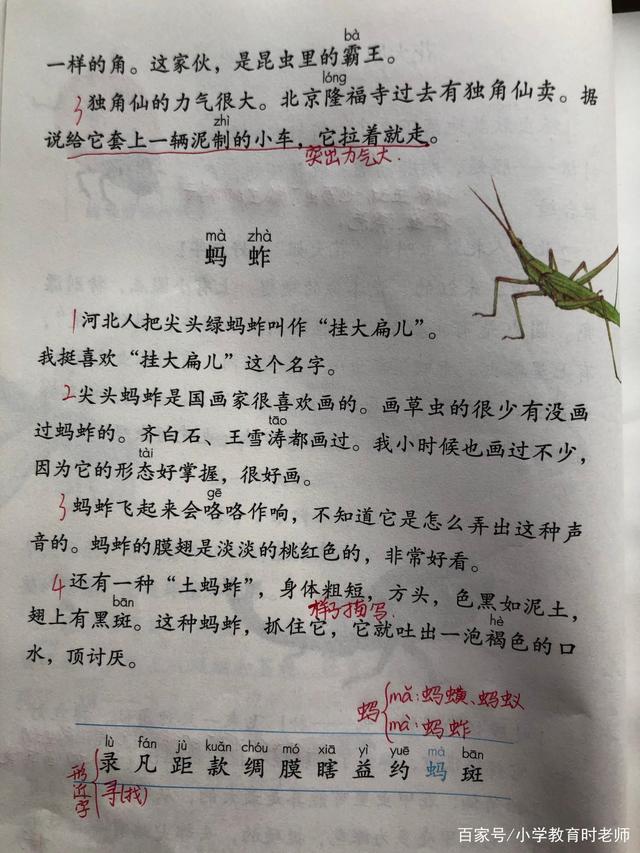 bà
一样的角。这家伙，是昆虫里的霸王。
lóng
3 独角仙的力气很大。北京隆福寺过去有独角仙卖。据
zhì
说给它套上一辆泥制的小车，它拉着就走。
突出力气大.
mà zhà
蚂 蚱
1 河北人把尖头绿蚂蚱叫作“挂大扁儿”。
我挺喜欢“挂大扁儿”这个名字。
2 尖头蚂蚱是国画家很喜欢画的。画草虫的很少有没画
tāo
过蚂蚱的。齐白石、王雪涛都画过。我小时候也画过不少，
tài
因为它的形态好掌握，很好画。
gē
3 蚂蚱飞起来会咯咯作响，不知道它是怎么弄出这种声
音的。蚂蚱的膜翅是淡淡的桃红色的，非常好看。
4 还有一种“土蚂蚱”，身体粗短，方头，色黑如泥土，
bān 样子描写. hè
翅上有黑斑。这种蚂蚱，抓住它，它就吐出一泡褐色的口
水，顶讨厌。
蚂 mǎ: 蚂蟥、蚂蚁
mà: 蚂蚱
lù fán jù kuǎn chóu mó xiā yì yuē mà bān
录 凡 距 款 绸 膜 瞎 益 约 蚂 斑
形近字 寻(找)
百家号/小学教育时老师